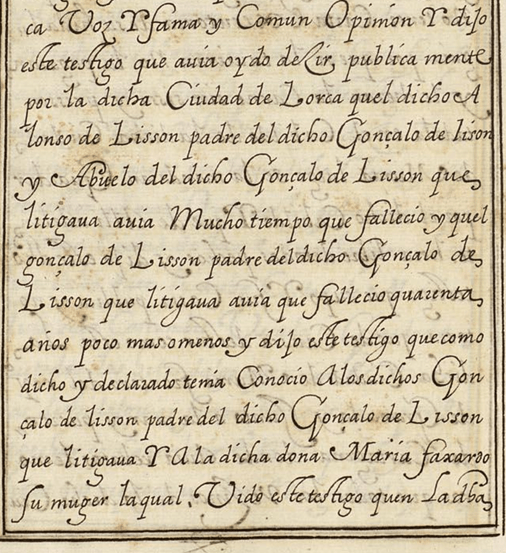 ca Voz Y fama y Comun Opinion Y dijo
este testigo que auia oydo deZir, publica mente
por la dicha Ciudad de Lorca quel dicho A
lonso de Lisson padre del dicho Gonçalo de lison
y Abuelo del dicho Gonçalo de Lisson que
litigaua auia Mucho tiempo que fallecio y quel
gonçalo de Lisson padre del dicho Gonçalo de
Lisson que litigaua auia que fallecio quarenta
años poco mas omenos y dijo este testigo que como
dicho y declarado tenia Conocio Alos dichos Gon
çalo de lisson padre del dicho Gonçalo de Lisson
que litigaua Y A la dicha dona Maria faxardo
su muger laqual, Vido este testigo quen La dha